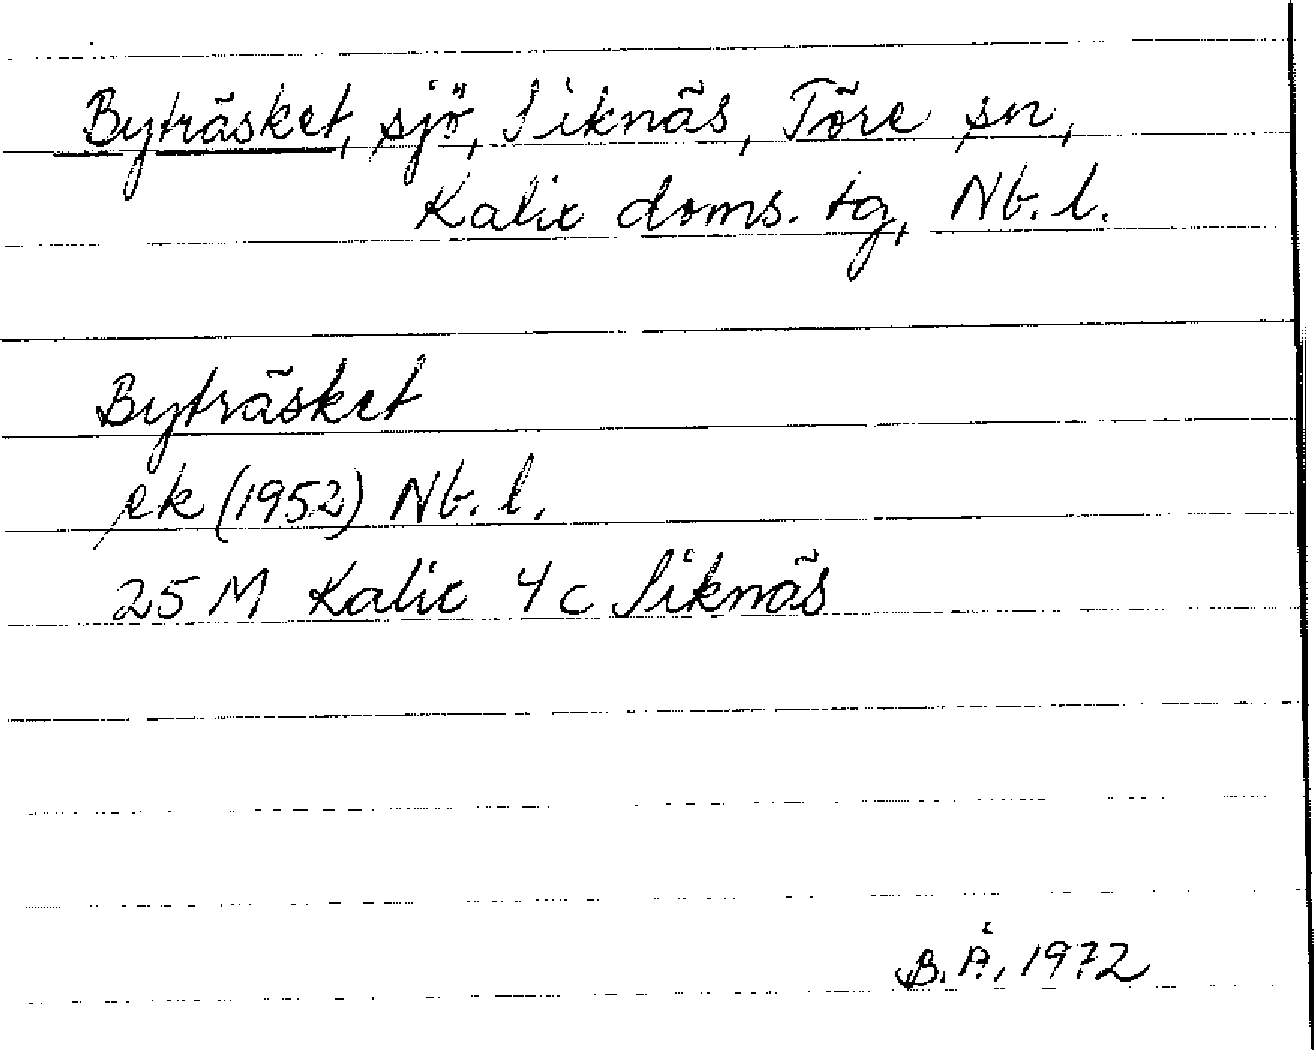 Byträsket, sjö, Siknäs, Töre sn,
Kalix doms. tg, Nb. l.
Byträsket
ek (1952) Nb. l.
25 M Kalix 4 c Siknäs
B. Å. 1972